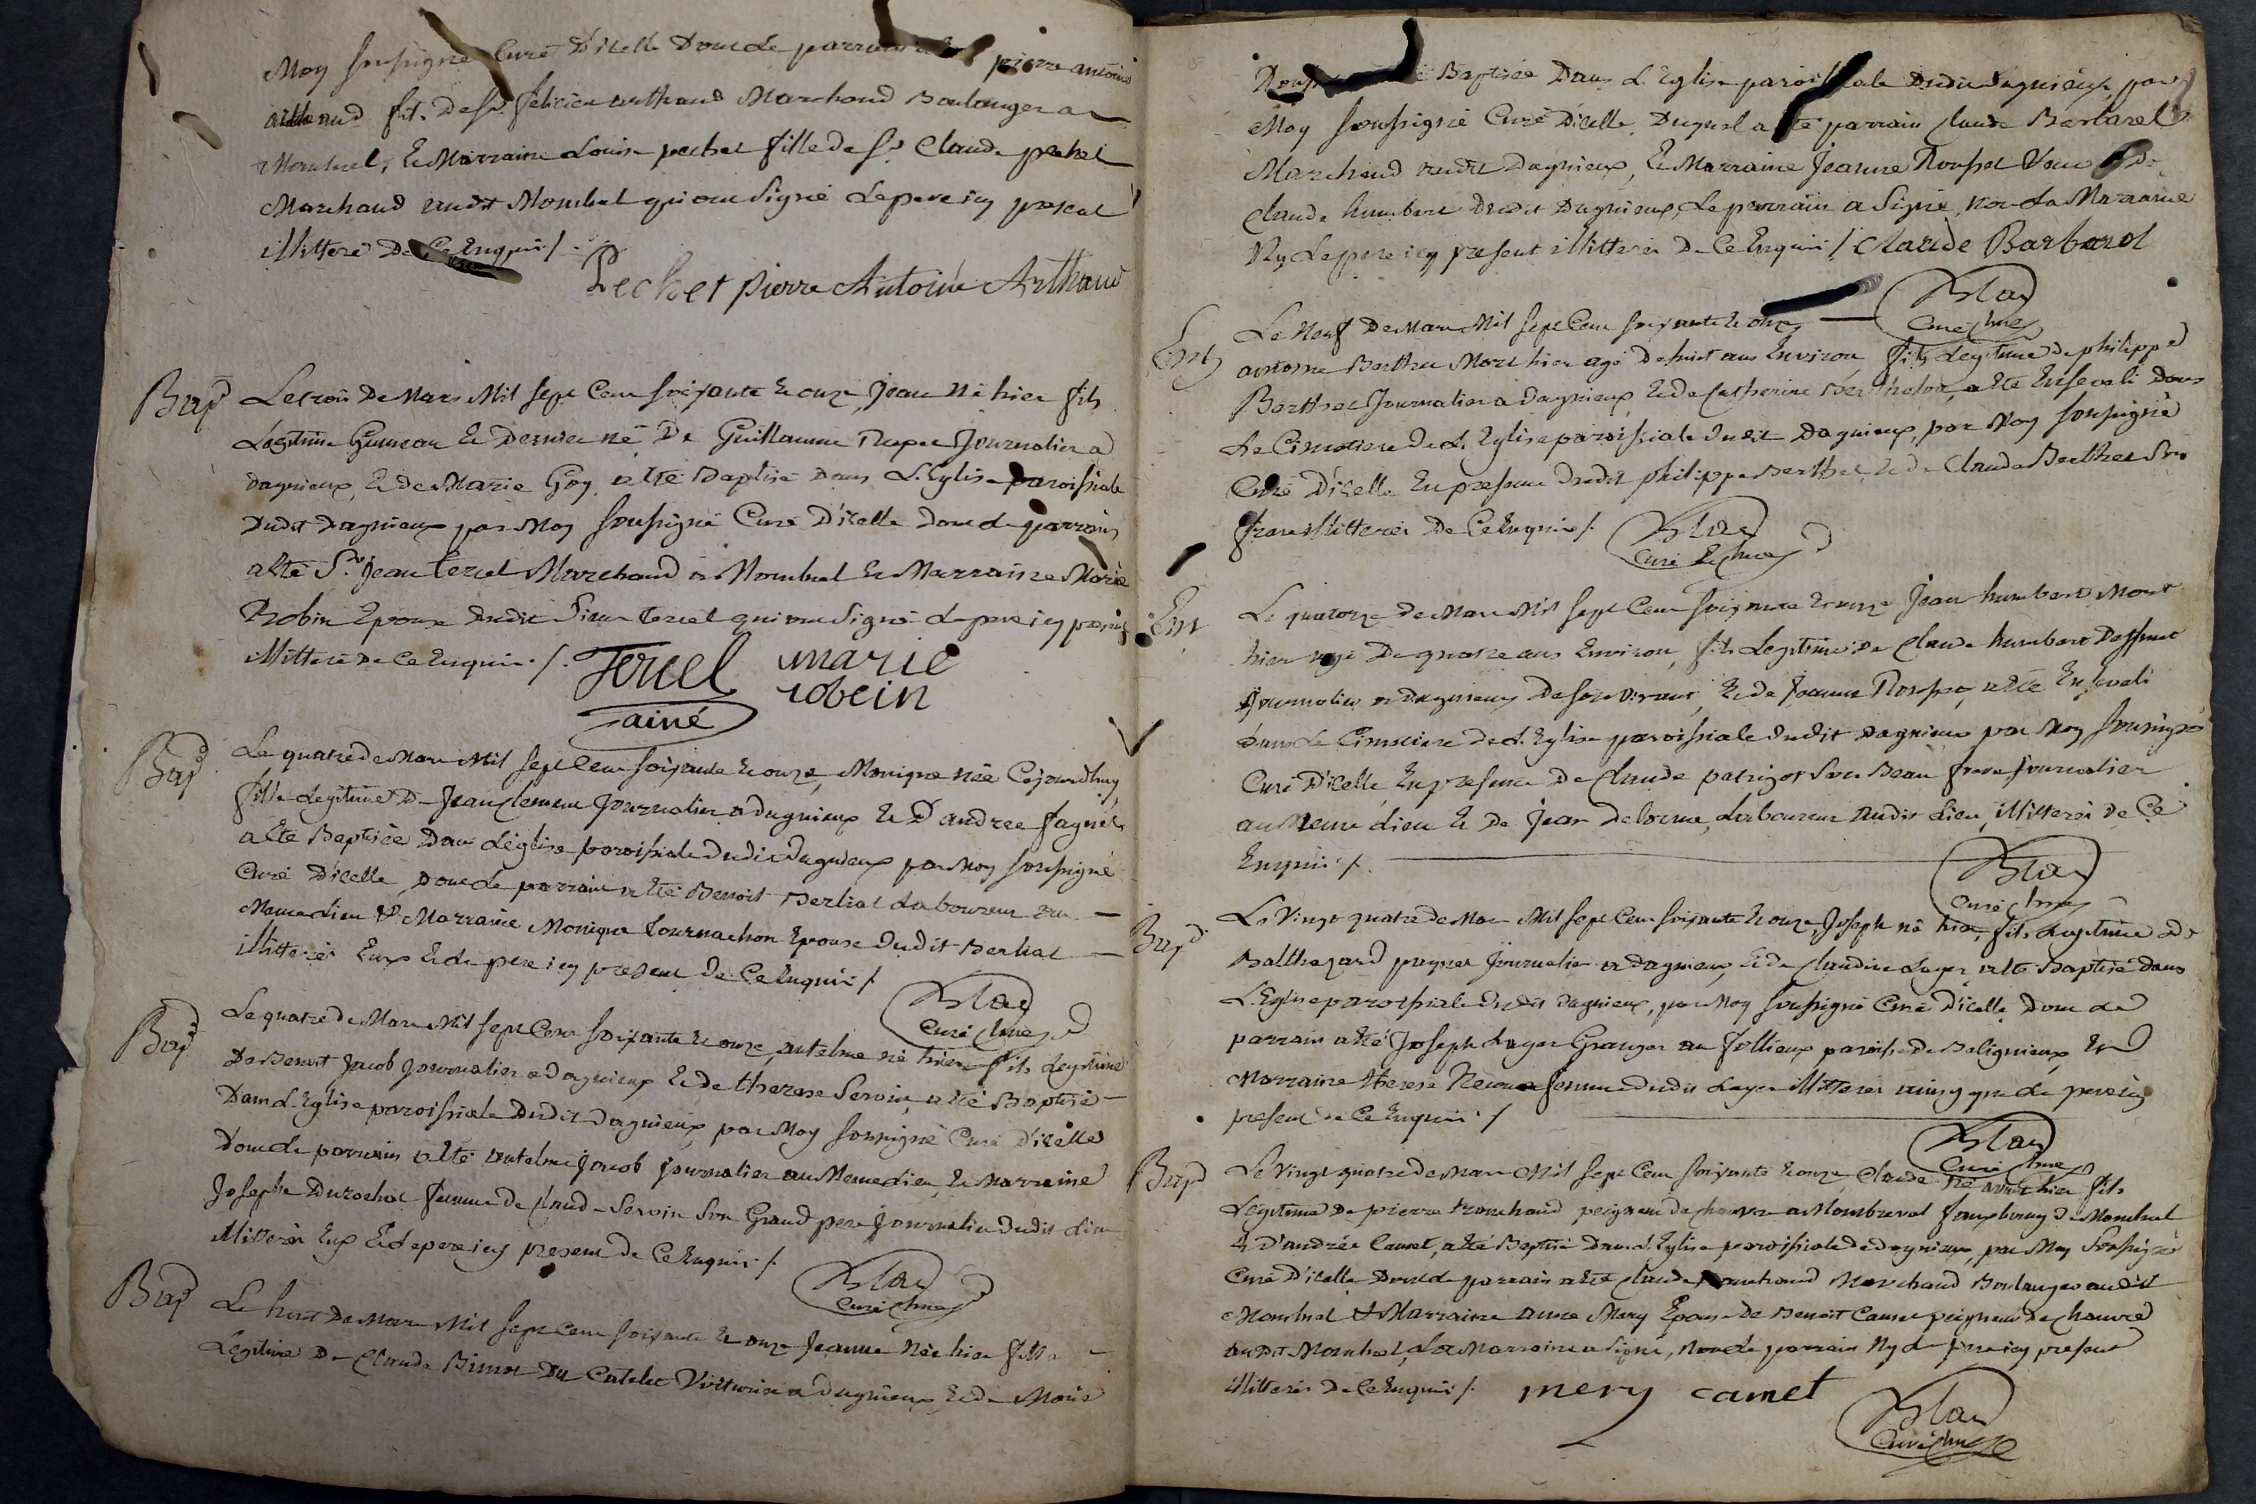 Moy soussigné Curé D'icelle Dont Le parrain a été pierre antoine
arthaud fils De Sr. felicien arthaud Marchand Boulanger a
Montluel, Et Marraine Louise pechet fille de Sr. Claude pechet
Marchand audit Monluel qui ont Signé Le pere icy present
illitteré De Ce Enquis /.
Pechet pierre Antoine Arthaud
Bapt. Le trois De Mars Mil sept Cent soixante Et onze, Jean Né hier fils
Legitime Gumeau Et Dernier né De Guillaume Journalier a
dagnieux, Et de Marie Goy, a été Baptisé Dans L'Eglise paroissiale
Dudit Dagnieux par Moy soussigné Curé D'icelle Dont Le parrain
a Eté Sr. Jean tercel Marchand a Monluel Et Marraine Marie
Robin Epouse Dudit Sieur tercel qui ont Signé Le pere icy present
illitteré de Ce Enquis ./.
Tercel marie
ainé robein
Bapt. Le quatre de Mars Mil sept Cent soixante Et onze, Monique née Cejourdhuy
fille Legitime De Jean Clement Journalier a dagnieux Et D'andrée fagnet
a Eté Baptisée Dans L'église paroissiale dudit dagnieux par Moy soussigné
Curé D'icelle Dont Le parrain a Eté Benoit Berliat Laboureur au
Meme Lieu & Marraine Monique tournachon Epouse dudit Berliat
illitterés Eux Et Le pere icy present De Ce Enquis /
Blad
Curé
Bapt. Le quatre de Mars Mil sept Cent soixante Et onze, antelme né hier fils Legitime
De Benoit Jacob Journalier a Dagnieux Et de therese Servin, a été Baptisé
Dans L'Eglise paroissiale Dudit Dagnieux par Moy soussigné Curé D'icelle
Dont Le parrain a Eté antelme Jacob journalier au Meme Lieu, Et Marraine
Josephe Durochat femme de Claude Servin Son Grand pere Journalier Dudit Lieu
illitterés Eux Et Le pere icy present De Ce Enquis /.
Blad
Curé
Bapt. Le huit De Mars Mil sept Cent soixante Et onze Jeanne Née hier fille
Legitime De Claude Bimot Du Catelet Voiturier a dagnieux, Et de Marie
Baptisée Dans L'Eglise paroissiale Dudit Dagnieux, par
Moy soussigné Curé D'icelle, Duquel a été parrain Claude Barbarel
Marchand audit Dagnieux, Et Marraine Jeanne Rousset Veuve de
Claude humbert Dudit Dagnieux, Le parrain a Signé, non La Marraine
Ny Le pere icy present illitterés De Ce Enquis / Claude Barbarel
Blad
Curé
Ent. Le Neuf De Mars Mil sept Cent soixante Et onze
antoine Berthet Mort hier agé De huit ans Environ fils Legitime de philippe
Berthet Journalier a Dagnieux, Et de Catherine Berthelon, a Eté Enseveli Dans
Le Cimetiere De L'Eglise paroissiale Dudit Dagnieux, par Moy soussigné
Curé D'icelle En presence Dudit philippe Berthet, Et de Claude Berthet Son
frere illitterés De Ce Enquis /.
Blad
Curé
Ent. Le quatorze De Mars Mil sept Cent soixante Et onze Jean humbert Mort
hier agé De quatre ans Environ, fils Legitime De Claude humbert Deffunt
Journalier a Dagnieux De Son vivant, Et de Jeanne Rousset, a Eté Enseveli
Dans Le Cimetiere De L'Eglise paroissiale dudit Dagnieux par Moy soussigné
Curé D'icelle, En presence De Claude patrigot Son Beau frere journalier
au Meme Lieu Et De Jean Delorme, Laboureur audit Lieu, illitterés De Ce
Enquis /.
Blad
Curé
Bapt. Le Vingt quatre de Mars Mil sept Cent soixante Et onze, Joseph né hier, fils Legitime de
Balthazard paynet Journalier a Dagnieux, Et de Claudine Layer a Eté Baptisé dans
L'Eglise paroissiale Dudit Dagnieux, par Moy soussigné Curé D'icelle Dont Le
parrain a Eté Joseph Layer Granger au follieux paroisse de Balignieux, Et
Marraine therese femme Dudit Layer illitterés ainsy que Le pere icy
present De Ce Enquis ./
Blad
Curé
Bapt. Le Vingt quatre De Mars Mil sept Cent soixante Et onze, Claude né avant hier fils
Legitime De pierre tronchaud peigneur de chanvre a Montbreval fauxbourg de Monluel
Et D'andrée Camet, a Eté Baptisé Dans L'Eglise paroissiale De Dagnieux, par Moy soussigné
Curé D'icelle Dont Le parrain a Eté Claude Marchand Boulanger audit
Monluel & Marraine anne Mery Epouse De Benoit Camet peigneur De Chanvre
audit Monluel, La Marraine a Signé, Non Le parrain Ny Le pere icy present
illitterés De Ce Enquis /. mery camet
Blad
Curé